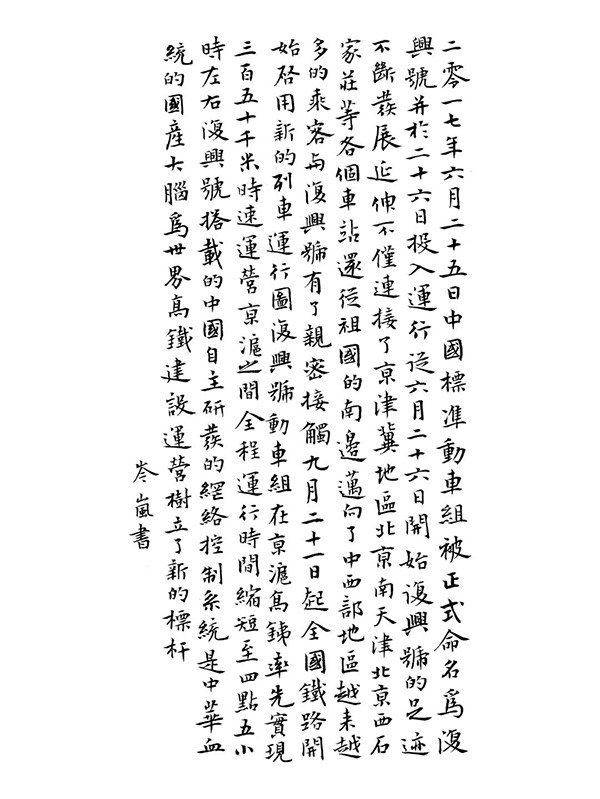 二零一七年六月二十五日中國標準動車組被正式命名爲復
興號并於二十六日投入運行從六月二十六日開始復興號的足迹
不斷發展延伸不僅連接了京津冀地區北京南天津北京西石
家莊等各個車站還從祖國的南邊邁向了中西部地區越来越
多的乘客与復興號有了親密接觸九月二十一日起全國鐵路開
始啓用新的列車運行圖復興號動車組在京滬高鉄率先實現
三百五十千米時速運營京滬之間全程運行時間縮短至四點五小
時左右復興號搭載的中國自主研發的網絡控制系統是中華血
統的國產大腦爲世界高鐵建設運營樹立了新的標杆
岑嵐書